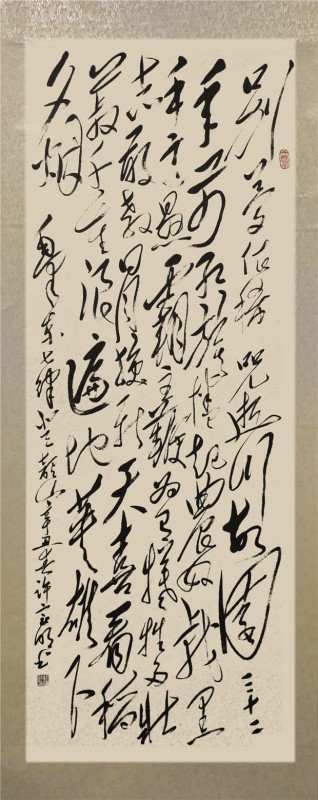 别夢依稀咒逝川故園三十二
年前红旗捲起農奴戟黑
手高悬霸主鞭为有犠牲多壮
志敢教日月換新天喜看稻
菽千重浪遍地英雄下
夕烟
毛泽东七律到韶山辛丑春许书